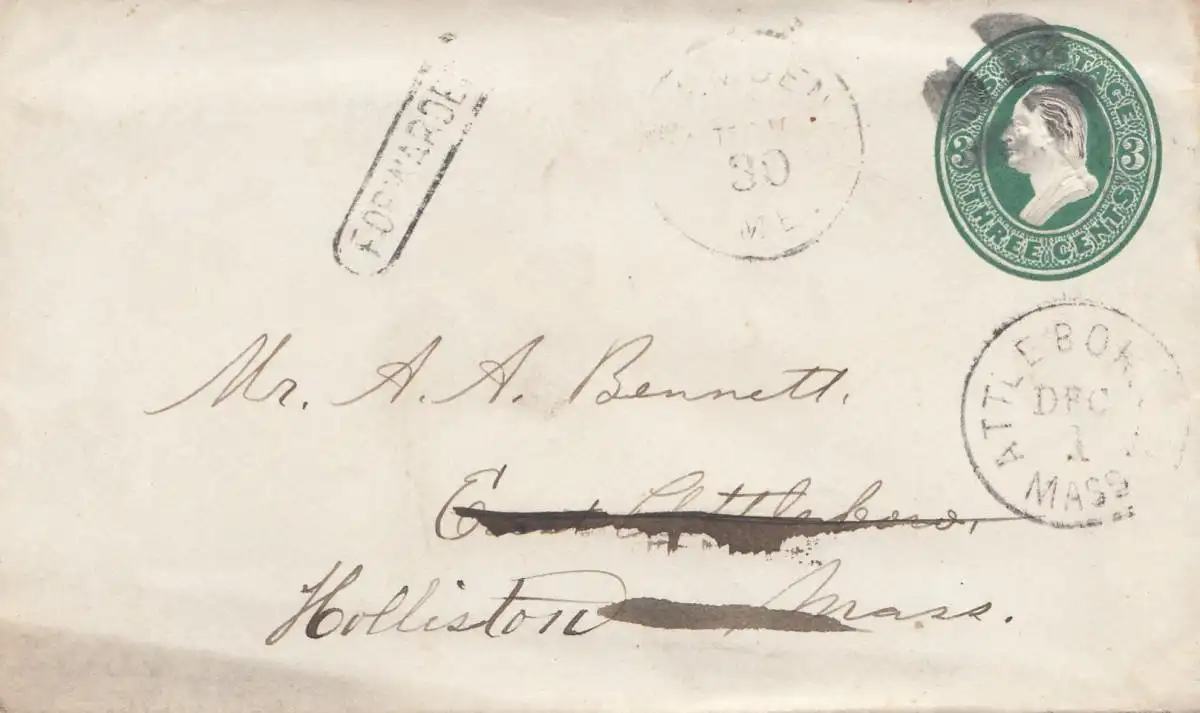 FORWARDED
30
ME.
U.S. POSTAGE
3 3
THREE CENTS
ATTLEBORO
DEC
1
MASS
Mr. A. A. Bennett.
East Attleboro,
Holliston Mass.